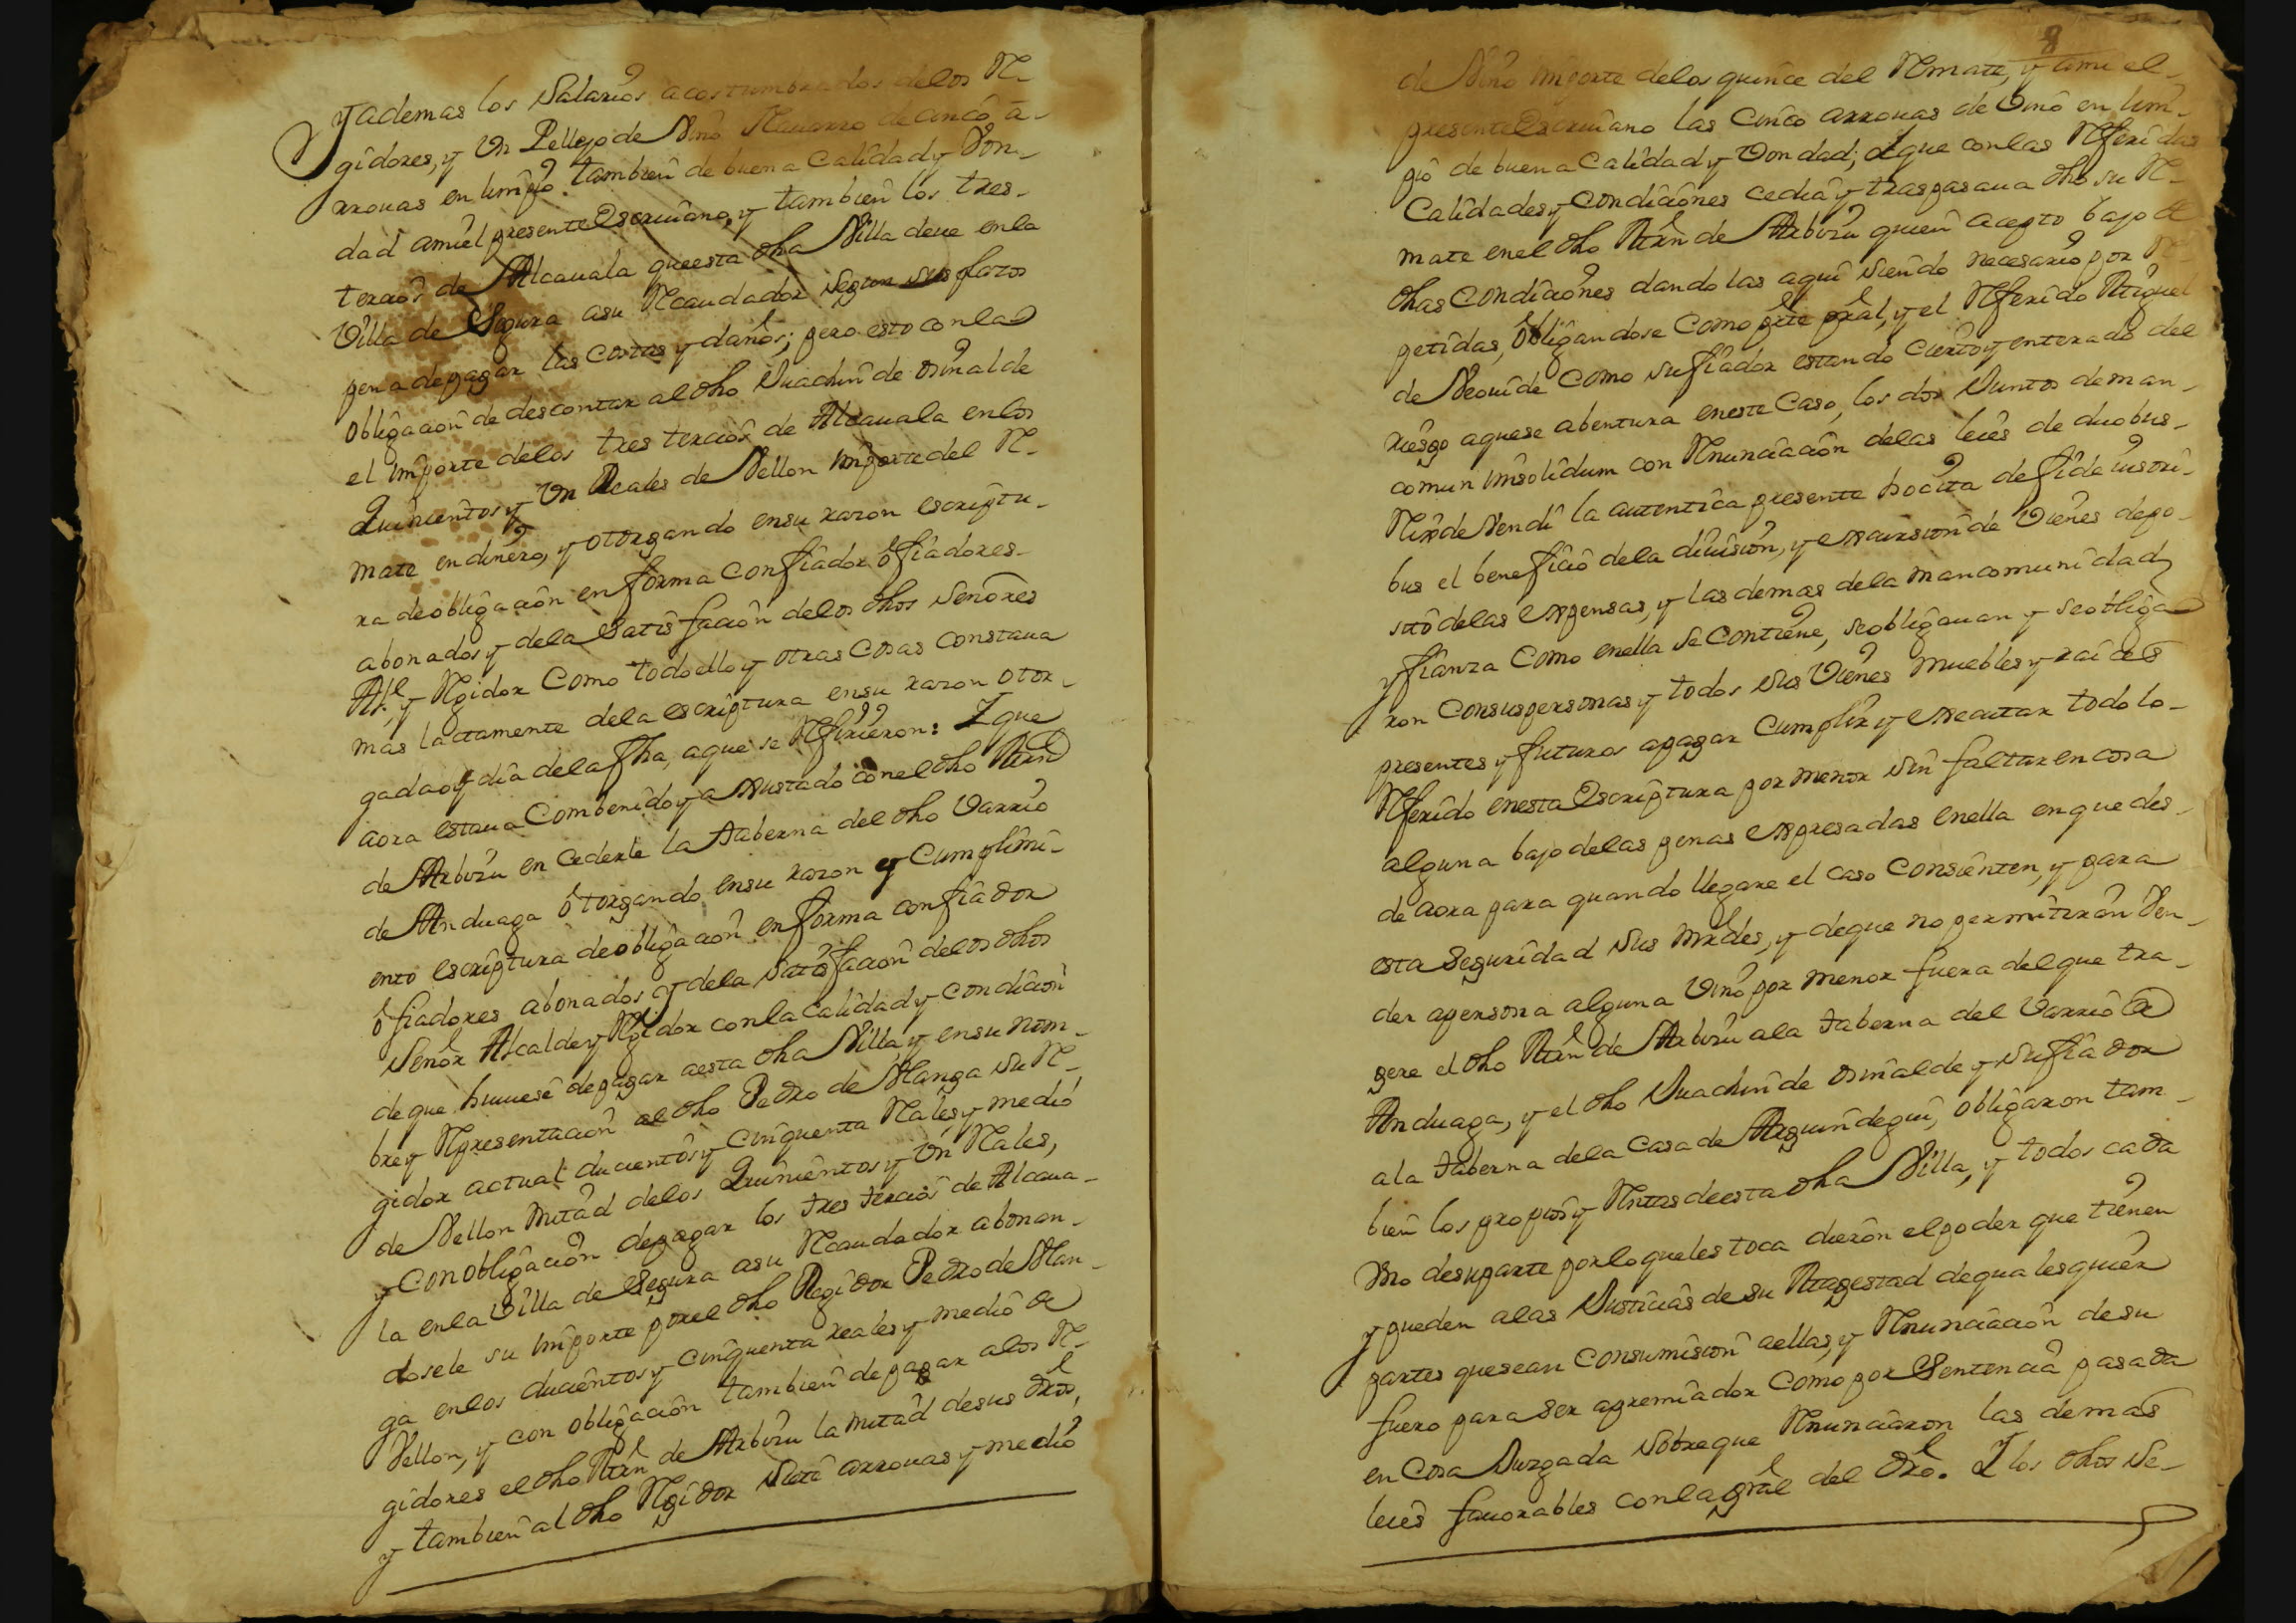 y ademas los Salarios acostumbrados delos R-
gidores, y Un Pellejo de Vino Navarro de cinco a-
rrouas en limpio tambien de buena Calidad y Von-
dad ami el presente Escriuano, y tambien los tres-
tercios de Alcauala que esta dha Villa deue en la
Villa de Segura asu Rcaudador segun sus plazos
pena de pagar las Costas y daños; pero esto con la
obligacion de descontar al dho Juachin de Osinalde
el importe delos tres tercios de Alcauala en los
Quinientos y Un Reales de Vellon importe del R-
mate en dinero, y otorgando ensu razon escriptu-
ra de obligacion en forma con fiador ô fiadores-
abonados y dela Satisfacion delos dhos Señores
Alle, y Rgidor Como todo ello y otras Cosas Constaua
mas lactamente dela escriptura ensu razon otor-
gada oy dia dela fha, aque se Rfirieron: I que
aora estaua Combenido y a Justado con el dho Mrn
de Arbizu en Cederle la taberna del dho Varrio
de Anduaga ôtorgando ensu razon y Cumplimi-
ento escriptura de obligacion en forma con fiador
ô fiadores abonados, y dela Satisfacion delos dhos
Señor Alcalde y Rgidor con la Calidad y Condicion
de que huuese de pagar aesta dha Villa, y ensu nom-
bre y Rpresentacion al dho Pedro de Manga su R-
gidor actual ducientos y Cinquenta Rales y medio
de Vellon mitad delos Quinientos y Un Rales,
y Con obligacion de pagar los tres tercios de Alcaua-
la en la Villa de Segura asu Rcaudador abonan-
dosele su importe por el dho Regidor Pedro de Man-
ga en los ducientos y Cinquenta reales y medio de
Vellon, y con obligacion tambien de pagar alos R-
gidores el dho Mrn de Arbizu la mitad desus dros,
y tambien al dho Rgidor Siete arrouas y medio
8
de Vino importe delos quince del Rmate, y ami el-
presente Escriuano las Cinco arrouas de Vino en lim-
pio de buena Calidad y Vondad; y que con las Rferidas
Calidades y Condiciones cedia y traspasaua dho su R-
mate en el dho Mrn de Arbizu quien acepto bajo de
dhas Condiciones dandolas aqui siendo necesario por R-
petidas, Obligandose Como prte pral, y el Rferido Miguel
de Neouide Como su fiador estando Cierto y enterado del
riesgo aquese abentura eneste Caso, los dos Juntos de man-
comun insolidum con Rnunciacion delas leies de duobus-
Rix de vendi la autentica presente hocita de fide iusori-
bus el beneficio dela diuision, y excursion de Vienes depo-
sito delas expensas, y las demas dela mancomunidad
y fianza Como enella se Contiene, se obligauan y se obliga
ron Consus personas y todos sus Vienes muebles y raices
presentes y futuros apagar Cumplir y executar todo lo-
Rferido enesta Escriptura por menor sin faltar en cosa
alguna bajo delas penas expresadas enella en que des-
de aora para quando llegare el caso Consienten, y para
esta Seguridad sus mrdes, y deque no permitiran Ven-
der apersona alguna Vino por menor fuera del que tra-
gere el dho Mrn de Arbizu ala taberna del Varrio de
Anduaga, y el dho Juachin de Osinalde y su fiador
ala taberna dela Casa de Arguindegui, obligaron tam-
bien los propios y Rntas de esta dha Villa, y todos cada
Uno desuparte por lo queles toca dieron el poder que tienen
y pueden alas Justicias de su Magestad de qualesquier
partes que sean Consumision aellas, y Rnunciacion de su
fuero para ser apremiados Como por Sentencia pasada
en Cosa Juzgada Sobre que Rnunciaron las demas
leies fauorables con la gral del dro. I los dhos Se-